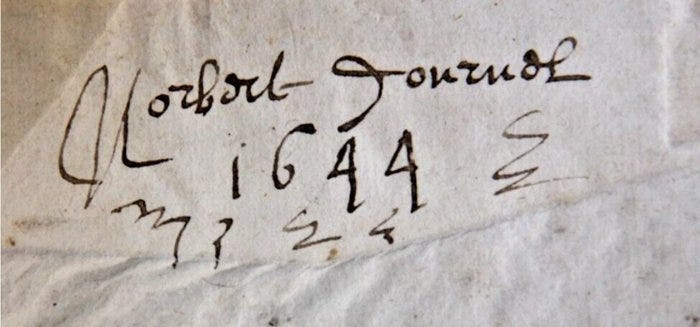 Norbert Journel
1644